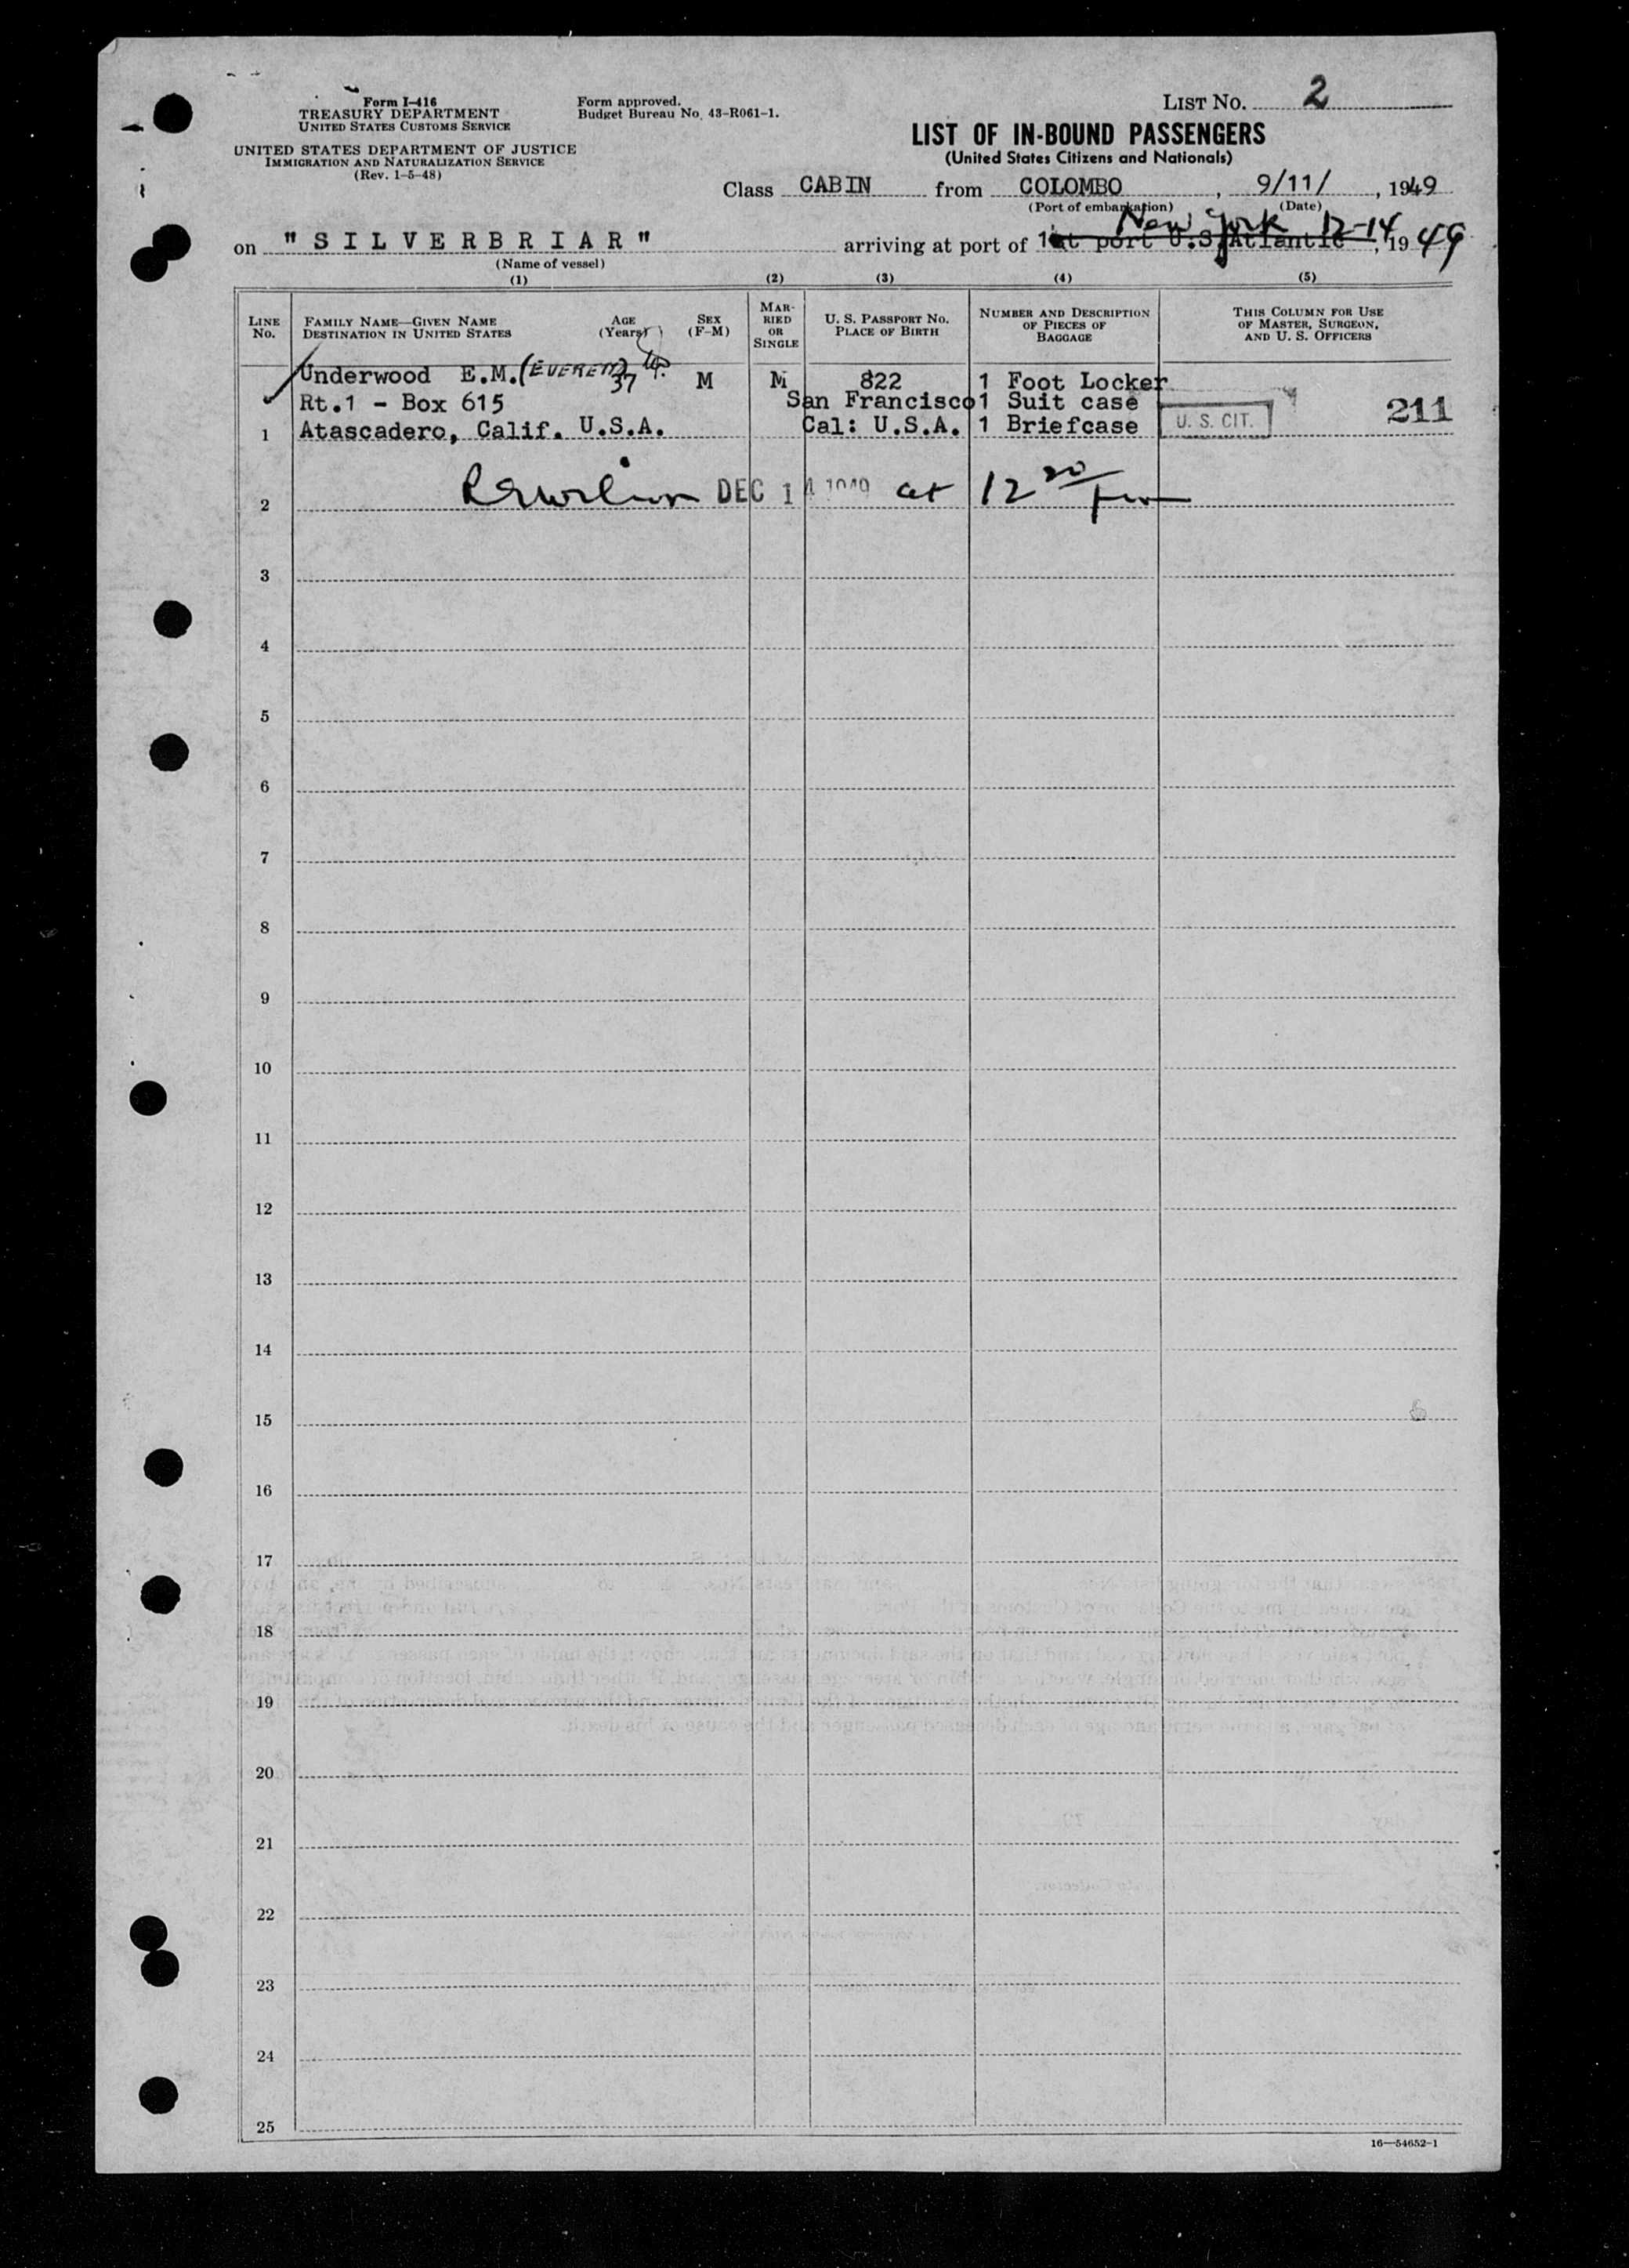 LIST NO. 2
Form I-416
TREASURY DEPARTMENT
UNITED STATES CUSTOMS SERVICE
UNITED STATES DEPARTMENT OF JUSTICE
IMMIGRATION AND NATURALIZATION SERVICE
(Rev. 1-5-48)
Form approved.
Budget Bureau No. 43-R061-1.
LIST OF IN-BOUND PASSENGERS
(United States Citizens and Nationals)
Class CABIN from COLOMBO, 9/11/, 1949
(Port of embarkation) (Date)
New York 12-14
on "SILVERBRIAR" arriving at port of 1st port U.S. Atlantic, 1949
(Name of vessel)
(1) (2) (3) (4) (5)
LINE No.
FAMILY NAME—GIVEN NAME
DESTINATION IN UNITED STATES
AGE
(Years)
SEX
(F-M)
MARRIED
OR
SINGLE
U. S. PASSPORT NO.
PLACE OF BIRTH
NUMBER AND DESCRIPTION
OF PIECES OF
BAGGAGE
THIS COLUMN FOR USE
OF MASTER, SURGEON,
AND U. S. OFFICERS
Underwood E.M. (EVERETT) 37 M M 822 1 Foot Locker
Rt.1 - Box 615 San Francisco 1 Suit case
1 Atascadero, Calif. U.S.A. Cal: U.S.A. 1 Briefcase U. S. CIT. 211
2 DEC 14 1949 at 12 20 pm
3
4
5
6
7
8
9
10
11
12
13
14
15
16
17
18
19
20
21
22
23
24
25
16—54652-1